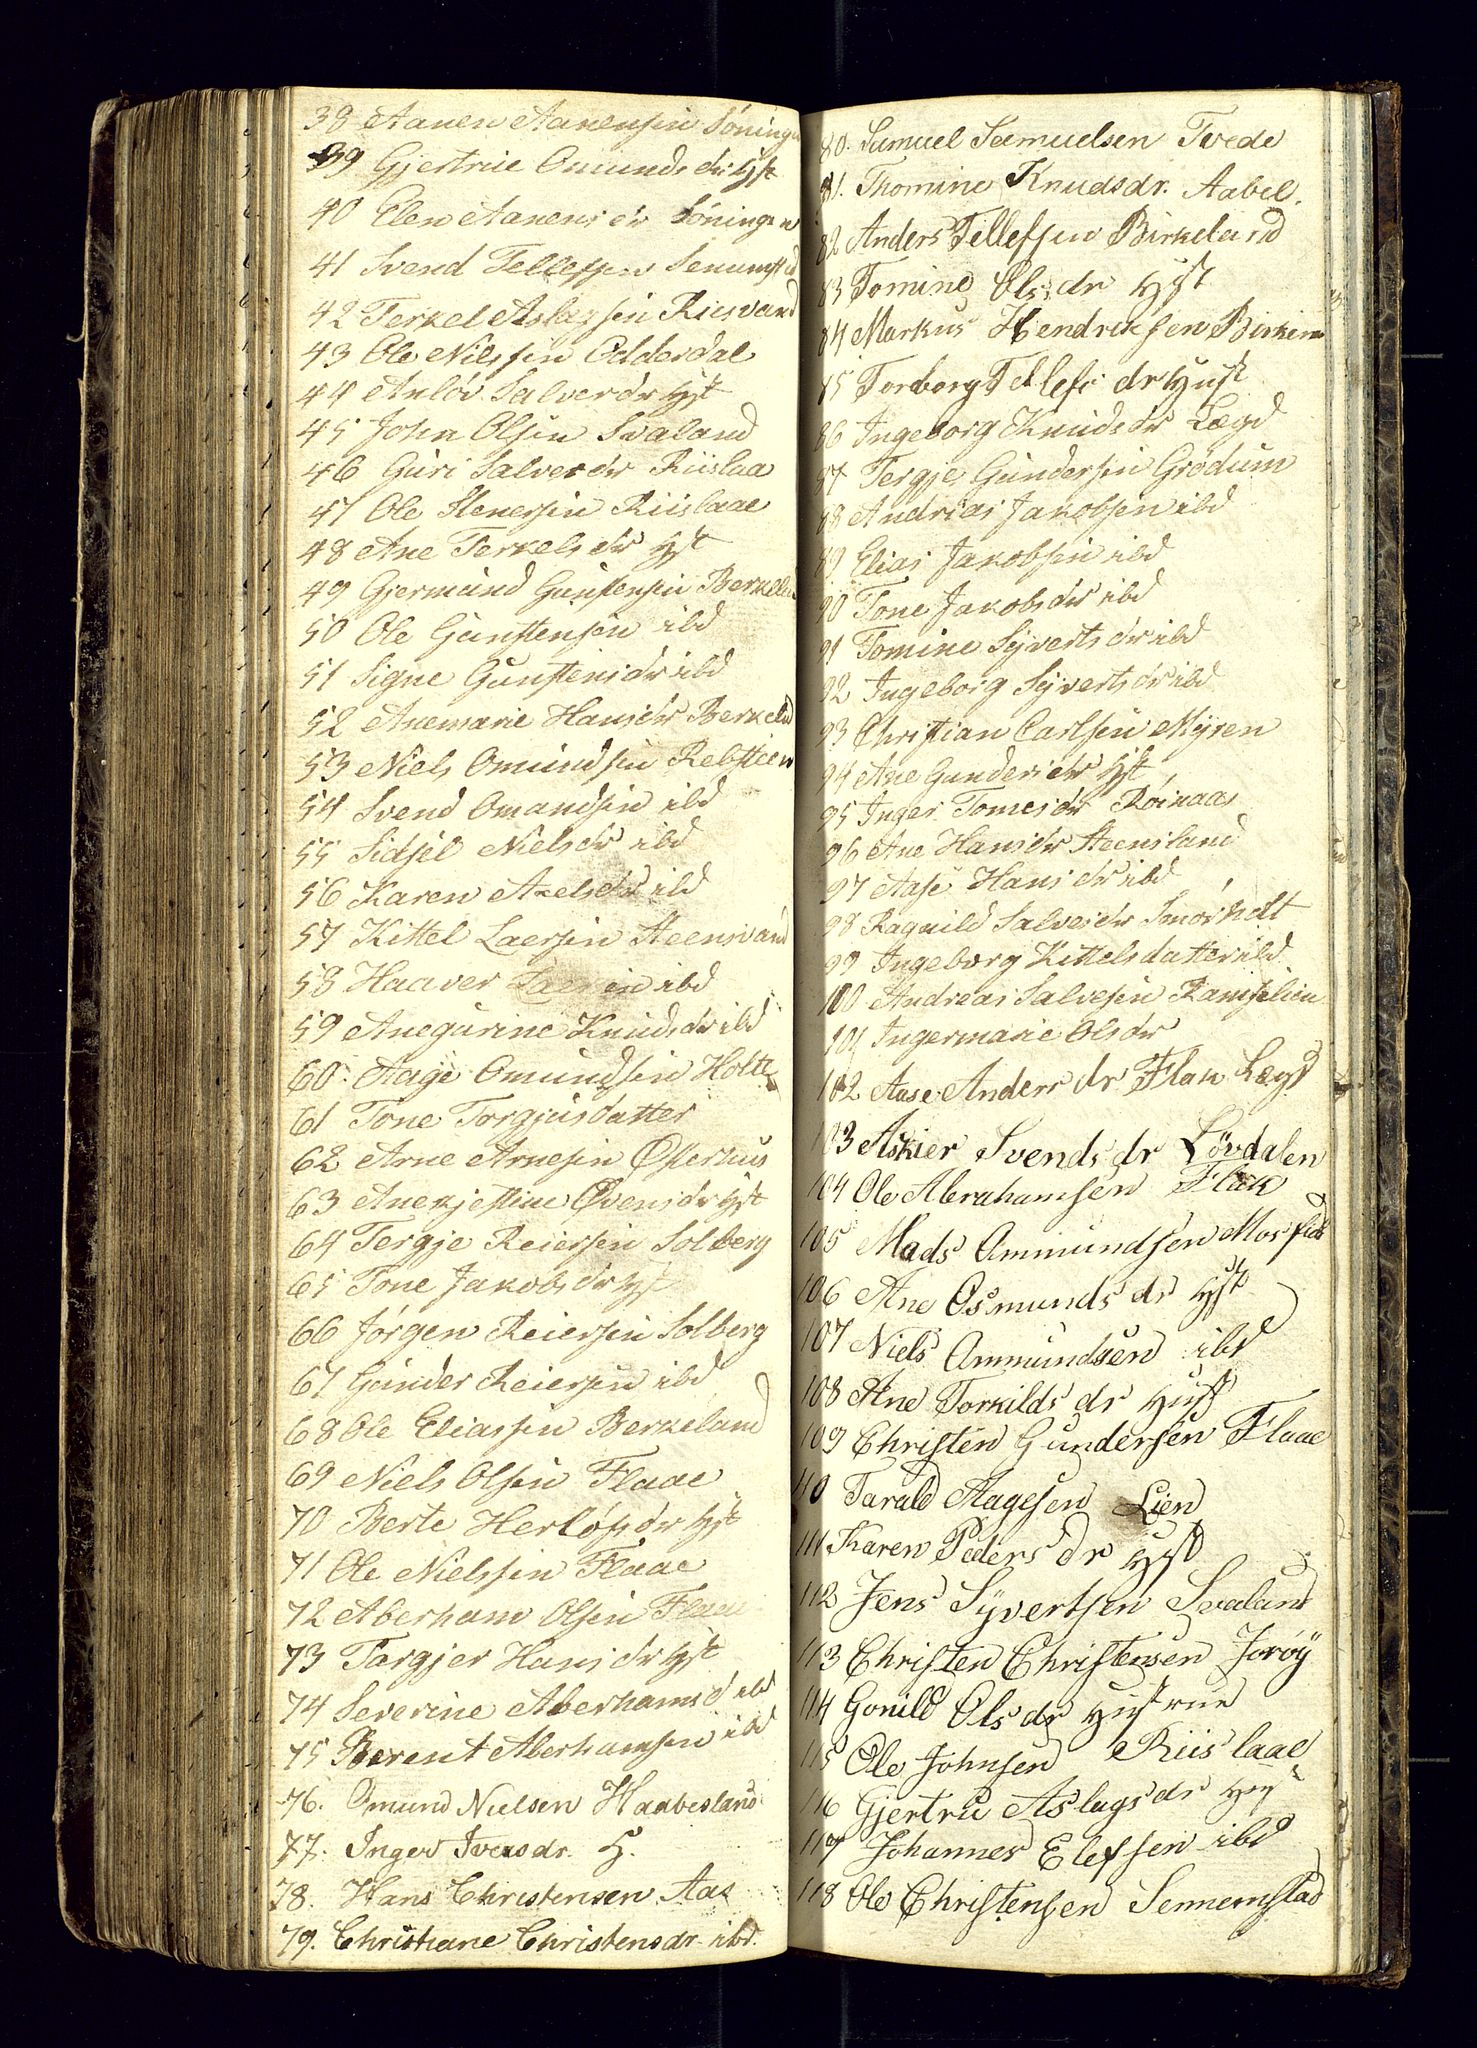 38 Aanen Aanensen Söningen
39 Gjertrue Omunds dr Hst
40 Elen Aanens dr Söningen
41 Svend Tellefsen Senumstad
42 Terkel Aslagsen Riisvand
43 Ole Nilssen Odderdal
44 Anlov Salves dr Hst
45 John Olsen Svaland
46 Guri Salves dr Riislaa
47 Ole Stenersen Riislaae
48 Ane Terkels dr Hst
49 Gjermund Gunstensen Berkeland
50 Ole Gunstensen ibd
51 Signe Gunstens dr ibd
52 Anemarie Hans dr Berkelnd
53 Niels Omundsen Rebsteen
54 Svend Omundsen ibd
55 Sidsel Niels dr ibd
56 Karen Axels dr ibd
57 Kittel Laersen Steensvand
58 Haaver Laersen ibd
59 Anegurine Knuds dr ibd
60. Aage Omundsen Holte
61 Tone Torgjusdatter
62 Arne Arnesen Østerhus
63 Anekjestine Øvens dr Hst
64 Tergje Reiersen Solberg
65 Tone Jakobs dr Hst
66 Jörgen Reiersen Solberg
67 Gunder Reiersen ibd
68 Ole Eliassen Berkeland
69 Niels Olsen Flaae
70 Berte Herlofs dr Hst
71 Ole Nielssen Flaae
72 Aberham Olsen Flaae
73 Targjer Hans dr Hst
74 Severine Aberhams d ibd
75 Berent Aberhamsen ibd
76. Omund Nielsen Haabesland
77. Inger Iversdr. H.
78. Hans Christensen Aas
79. Christiane Christensdr. ibd.
80. Samuel Samuelsen Tvede
81. Thomine Knudsdr. Aabel.
82 Anders Tellefsen Birkeland
83 Tomine Ols dr Hst
84 Markus Hendriksen Birkenes
85 Torborg Tellefs dr Hust
86 Ingeborg Knuds dr Lægd
87 Tergje Gundersen Grödum
88 Andrias Jakobsen ibd
89 Elias Jakobsen ibd
90 Tone Jakobs dr ibd
91 Tomine Syverts dr ibd
92 Ingeborg Syverts dr ibd
93 Christian Carlsen Myren
94 Ane Gunders dr Hst
95 Inger Tomes dr Röinaas
96 Ane Hans dr Steensland
97 Aase Hans dr ibd
98 Raguild Salves dr Smörholt
99 Ingeborg Kittelsdatter ibd
100 Andreas Salvesen Ramselien
101 Ingermarie Ols dr
102 Aase Anders dr Flak Lægd
103 Askier Svends dr Lövdalen
104 Ole Abrahamsen Flak
105 Mads Ammundsen
106 Ane Osmunds dr Hst
107 Niels Ammundsen ibd
108 Ane Torkilds dr Hust
109 Christen Gundersen Flaae
110 Tarald Aagesen Lien
111 Karen Peders dr Hst
112 Jens Syvertsen Svaland
113 Christen Christensen Joröy
114 Gonild Ols dr Hustrue
115 Ole Johnsen Riislaae
116 Gjertru Aslags dr Hst
117 Johannes Elefsen ibd
118 Ole Christensen Sennemstad